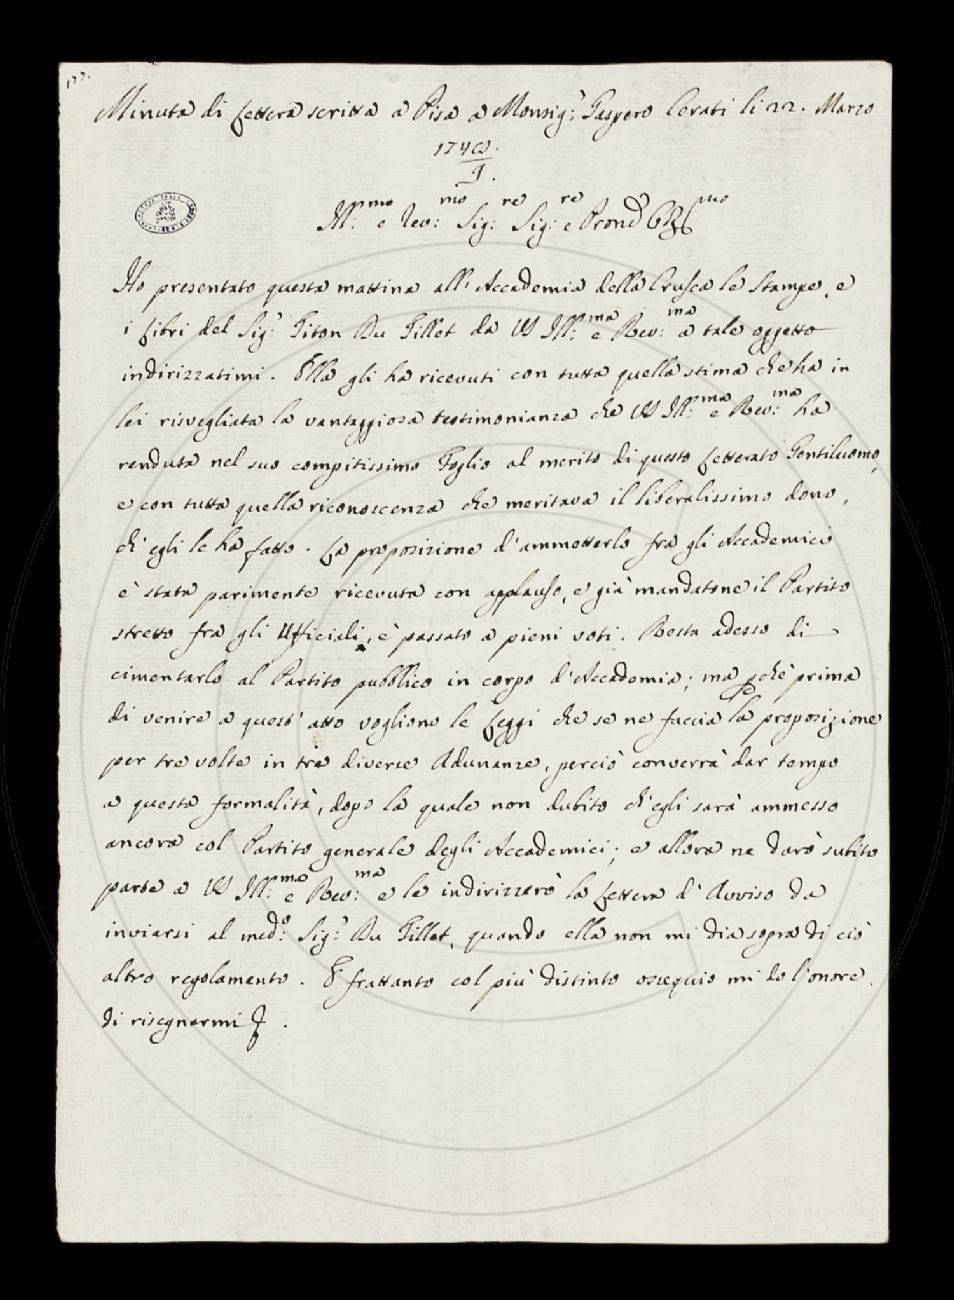 177.
Minuta di Lettera scritta a Pisa a Monsig:r Gaspero Cerati li 22. Marzo
174
Ill:mo e Rev:mo Sig:re Sig:re e Pron
Ho presentato questa mattina all' Accademia della Crusca le Stampe, e
i Libri del Sig:r Titon Du Tillet da VS Ill:ma e Rev:ma a tale oggetto
indirizzatimi. Ella gli ha ricevuti con tutta quella stima che ha in
lei risvegliata la vantaggiosa testimonianza che VS Ill:ma e Rev:ma ha
renduta nel suo compitissimo Foglio al merito di questo Letterato Gentiluomo,
e con tutta quella riconoscenza che meritava il liberalissimo dono,
ch' egli le ha fatto. La proposizione d'ammetterlo fra gli Accademici
è stata parimente ricevuta con applauso, e già mandatone il Partito
stretto fra gli Ufficiali, è passato a pieni voti. Resta adesso di
cimentarlo al Partito pubblico in corpo d'Accademia; ma pchè prima
di venire a quest' atto vogliono le Leggi che se ne faccia la proposizione
per tre volte in tre diverse Adunanze, perciò converrà dar tempo
a questa formalità, dopo la quale non dubito ch'egli sarà ammesso
ancora col Partito generale degli Accademici; e allora ne darò subito
parte a VS Ill:ma e Rev:ma e le indirizzerò la Lettera d' Avviso da
inviarsi al med:o Sig:r Du Tillet, quando ella non mi dia sopra di ciò
altro regolamento. E frattanto col più distinto ossequio mi do l'onore
di risegnarmi